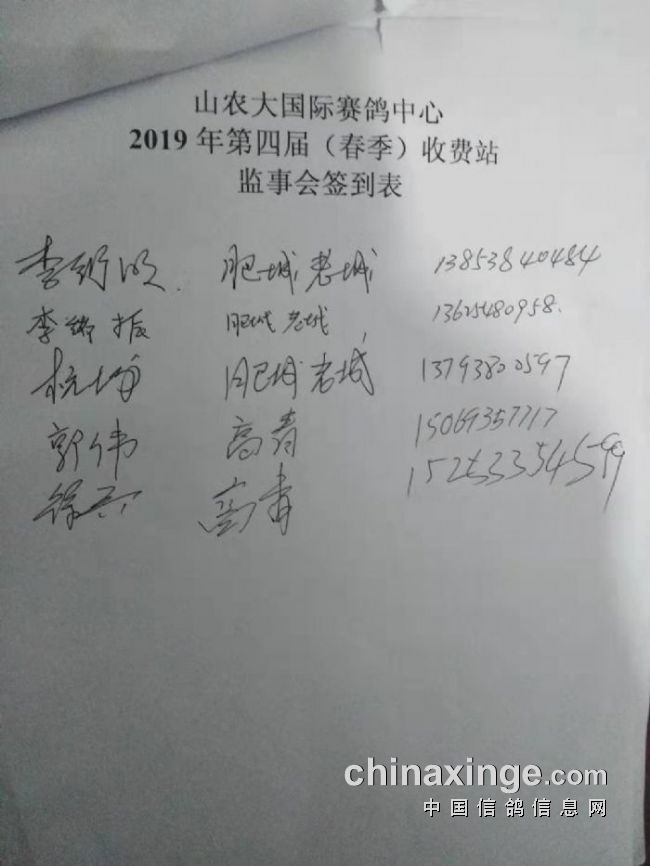 山农大国际赛鸽中心
2019年第四届（春季）收费站
监事会签到表
李 肥城老城 13853840484
李 振 肥城老城 13625480958.
肥城老城 13793800597
郭伟 高青 15069357717
徐 高青 15253354599
chinaxinge.com
中国信鸽信息网